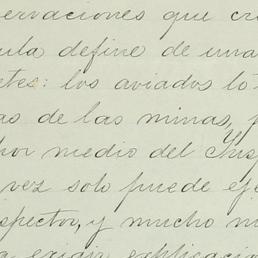 ervaciones que cr
ula define de una
tes: los aviados lo
as de las minas, p
por medio del Insp
vez solo puede eje
spector, y mucho m
a exigir esplicacio